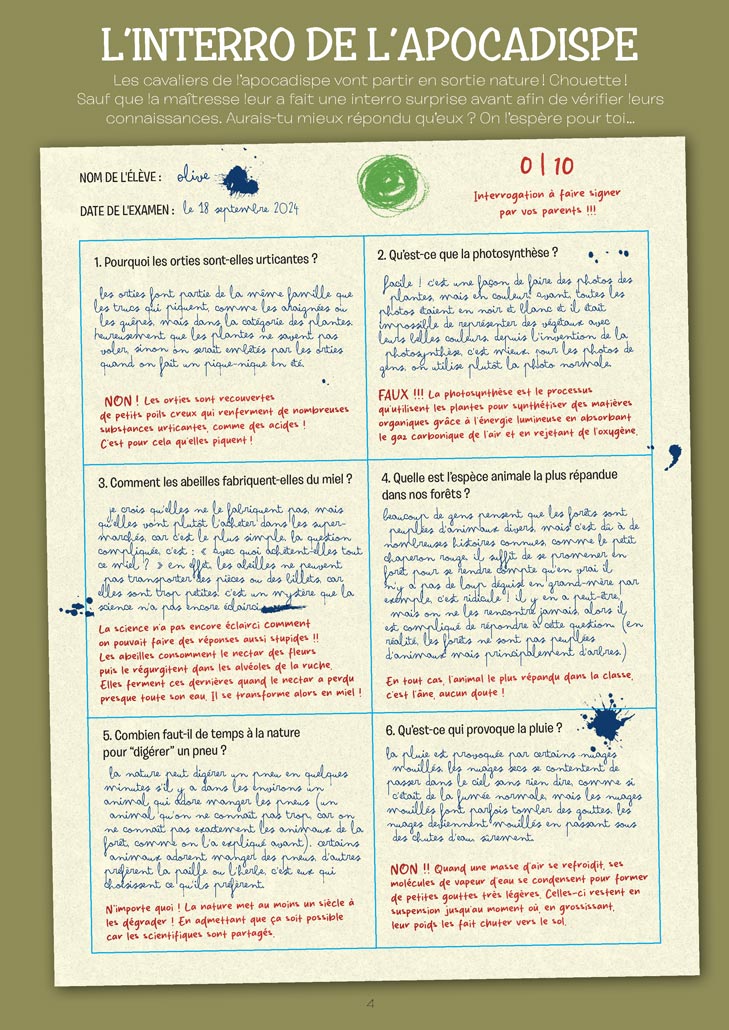 L'INTERRO DE L'APOCADISPE
Les cavaliers de l'apocadispe vont partir en sortie nature ! Chouette !
Sauf que la maîtresse leur a fait une interro surprise avant afin de vérifier leurs
connaissances. Aurais-tu mieux répondu qu'eux ? On l'espère pour toi...
NOM DE L'ÉLÈVE : olive
DATE DE L'EXAMEN : le 18 septembre 2024
0 | 10
Interrogation à faire signer
par vos parents !!!
1. Pourquoi les orties sont-elles urticantes ?
les orties font partie de la même famille que
les trucs qui piquent, comme les araignées ou
les guêpes, mais dans la catégorie des plantes.
heureusement que les plantes ne savent pas
voler, sinon on serait embêtés par les orties
quand on fait un pique-nique en été.
NON ! Les orties sont recouvertes
de petits poils creux qui renferment de nombreuses
substances urticantes, comme des acides !
C'est pour cela qu'elles piquent !
2. Qu'est-ce que la photosynthèse ?
facile ! c'est une façon de faire des photos des
plantes, mais en couleur. avant, toutes les
photos étaient en noir et blanc et il était
impossible de représenter des végétaux avec
leurs belles couleurs. depuis l'invention de la
photosynthèse, c'est mieux. pour les photos de
gens, on utilise plutôt la photo normale.
FAUX !!! La photosynthèse est le processus
qu'utilisent les plantes pour synthétiser des matières
organiques grâce à l'énergie lumineuse en absorbant
le gaz carbonique de l'air et en rejetant de l'oxygène.
3. Comment les abeilles fabriquent-elles du miel ?
je crois qu'elles ne le fabriquent pas, mais
qu'elles vont plutôt l'acheter dans les super-
marchés, car c'est le plus simple. la question
compliquée, c'est : « Avec quoi achètent-elles tout
ce miel ? » en effet, les abeilles ne peuvent
pas transporter des pièces ou des billets, car
elles sont trop petites ! c'est un mystère que la
science n'a pas encore éclairci
La science n'a pas encore éclairci comment
on pouvait faire des réponses aussi stupides !!
Les abeilles consomment le nectar des fleurs
puis le régurgitent dans les alvéoles de la ruche.
Elles ferment ces dernières quand le nectar a perdu
presque toute son eau. Il se transforme alors en miel !
4. Quelle est l'espèce animale la plus répandue
dans nos forêts ?
beaucoup de gens pensent que les forêts sont
peuplées d'animaux divers, mais c'est dû à de
nombreuses histoires connues, comme le petit
chaperon rouge. il suffit de se promener en
forêt pour se rendre compte qu'en vrai il
n'y a pas de loup déguisé en grand-mère par
exemple, c'est ridicule ! il y en a peut-être,
mais on ne les rencontre jamais, alors il
est compliqué de répondre à cette question (en
réalité, les forêts ne sont pas peuplées
d'animaux mais principalement d'arbres.)
En tout cas, l'animal le plus répandu dans la classe,
c'est l'âne, aucun doute !
5. Combien faut-il de temps à la nature
pour “digérer” un pneu ?
la nature peut digérer un pneu en quelques
minutes s'il y a dans les environs un
animal qui adore manger les pneus (un
animal qu'on ne connaît pas trop, car on
ne connaît pas exactement les animaux de la
forêt, comme on l'a expliqué avant). certains
animaux adorent manger des pneus, d'autres
préfèrent la paille ou l'herbe, c'est eux qui
choisissent ce qu'ils préfèrent.
N'importe quoi ! La nature met au moins un siècle à
les dégrader ! En admettant que ça soit possible
car les scientifiques sont partagés.
6. Qu'est-ce qui provoque la pluie ?
la pluie est provoquée par certains nuages
mouillés. les nuages secs se contentent de
passer dans le ciel sans rien dire, comme si
c'était de la fumée normale, mais les nuages
mouillés font parfois tomber des gouttes. les
nuages deviennent mouillés en passant sous
des chutes d'eau sûrement.
NON !! Quand une masse d'air se refroidit, ses
molécules de vapeur d'eau se condensent pour former
de petites gouttes très légères. Celles-ci restent en
suspension jusqu'au moment où, en grossissant,
leur poids les fait chuter vers le sol.
4